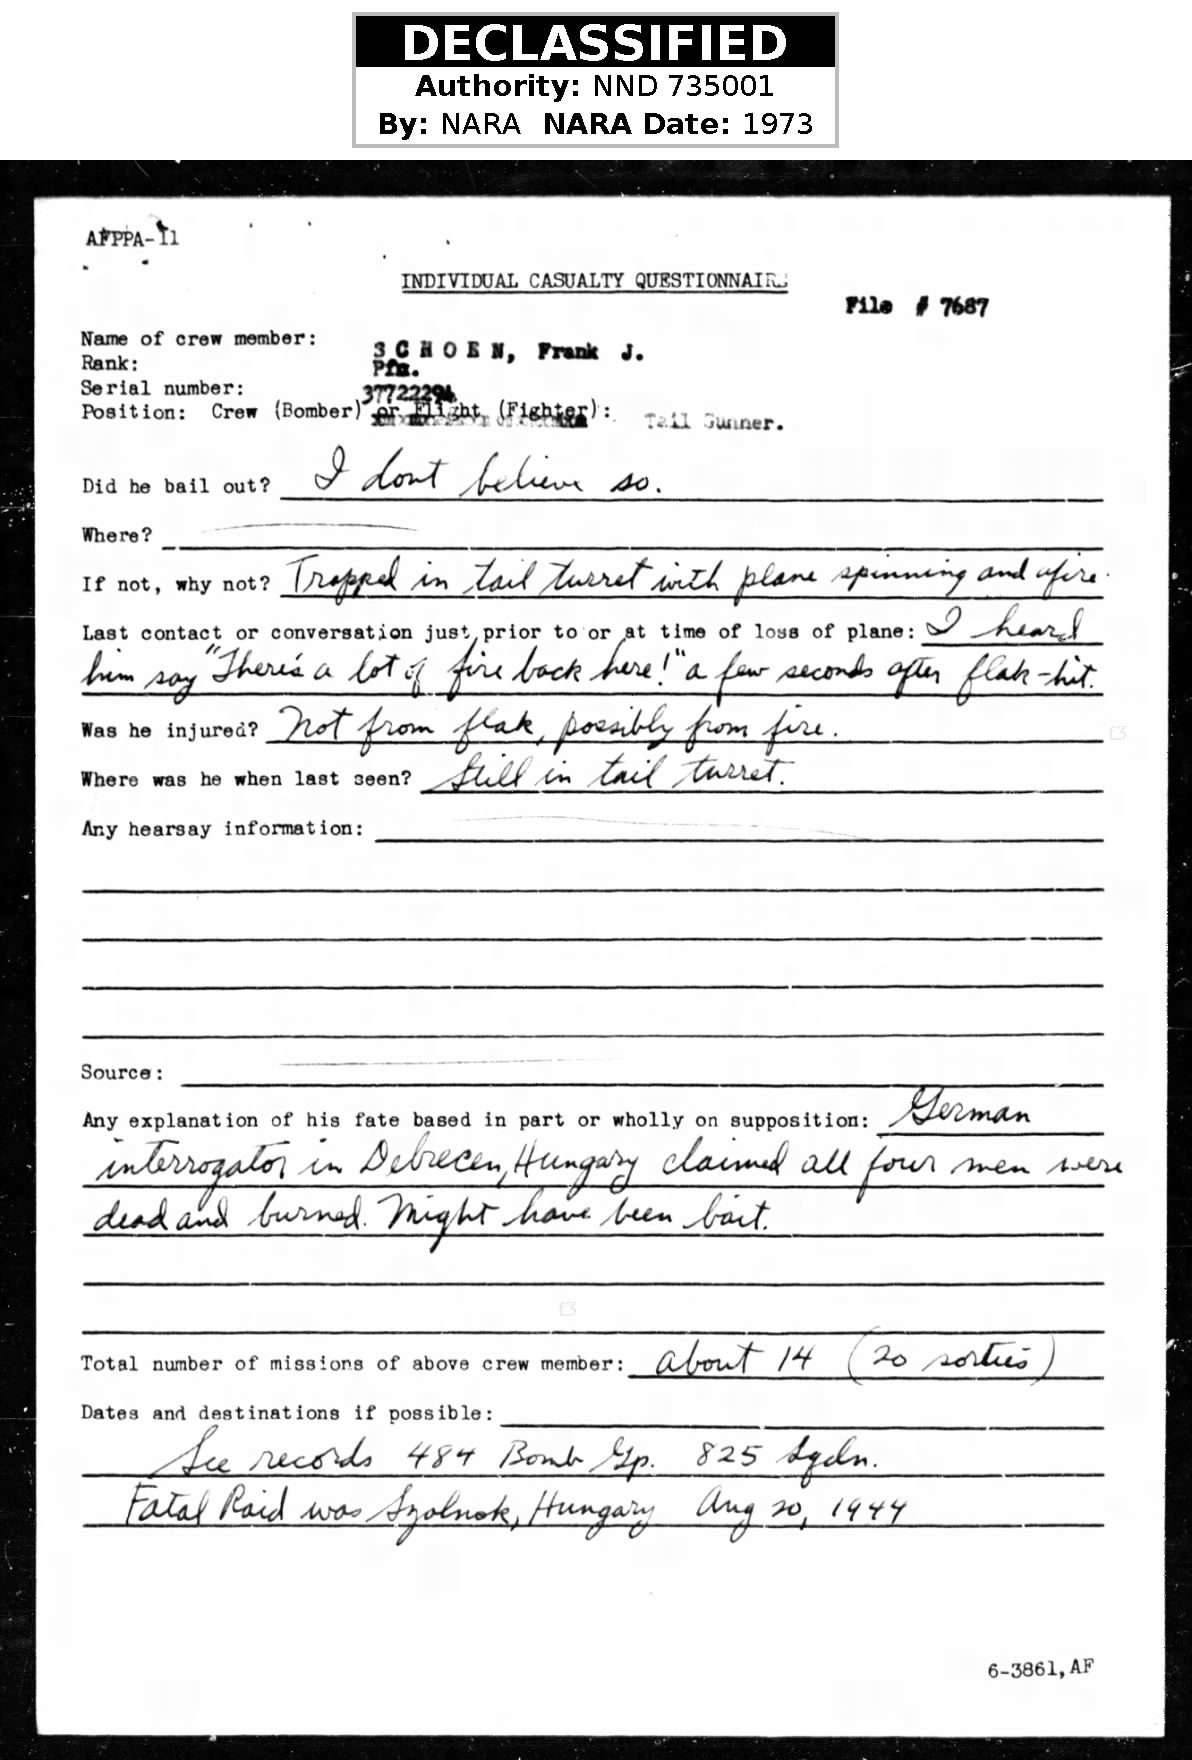 DECLASSIFIED
Authority: NND 735001
By: NARA NARA Date: 1973
AFPPA-11
INDIVIDUAL CASUALTY QUESTIONNAIRE
File # 7687
Name of crew member: SCHOEN, Frank J.
Rank: Pfc.
Serial number: 37722294
Position: Crew (Bomber) or Flight (Fighter): Tail Gunner.
Did he bail out? I dont believe so.
Where?
If not, why not? Trapped in tail turret with plane spinning and afire.
Last contact or conversation just prior to or at time of loss of plane: I heard
him say "There's a lot of fire back here!" a few seconds after flak-hit.
Was he injured? Not from flak, possibly from fire.
Where was he when last seen? Still in tail turret.
Any hearsay information:
Source:
Any explanation of his fate based in part or wholly on supposition: German
interrogator in Debrecen, Hungary claimed all four men were
dead and burned. Might have been bait.
Total number of missions of above crew member: about 14 (20 sorties)
Dates and destinations if possible:
See records 484 Bomb Gp. 825 Sqdn.
Fatal Raid was Szolnok, Hungary Aug 20, 1944
6-3861, AF